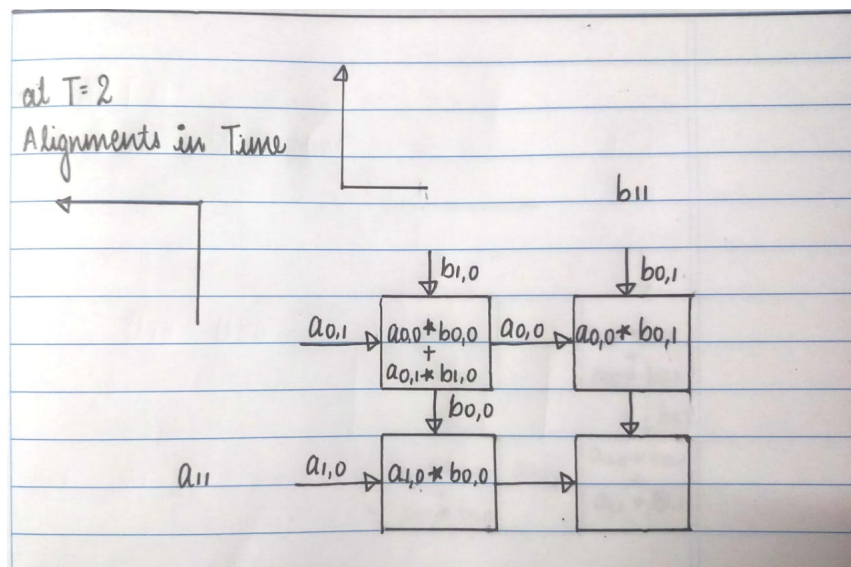 at T=2
Alignments in Time
b11
b1,0
b0,1
a0,1
a0,0*b0,0
+
a0,1*b1,0
a0,0
a0,0*b0,1
b0,0
a11
a1,0
a1,0*b0,0